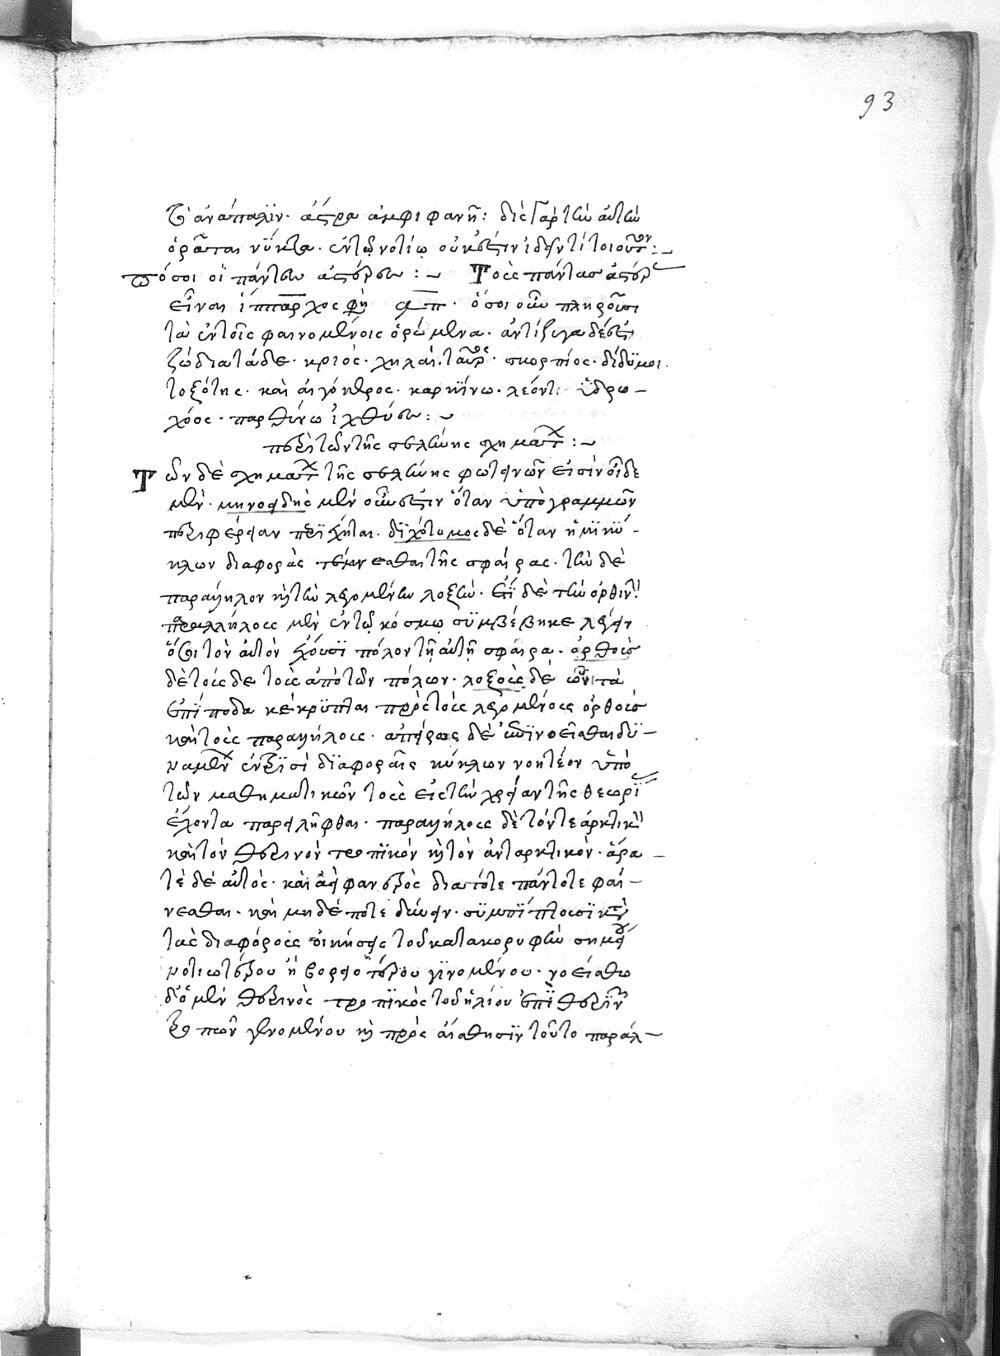 93
ἀνάπαλιν· ἄστρα ἀμφιφανῆ: δὶς γὰρ τῶν αὐτῶν
ὁρᾶται νύκτα· ἐν τῷ νοτίῳ οὐκ ἔστιν ἰδεῖν τι τοιοῦτον:
πόσοι οἱ πάντων ἀστέρων: Τοὺς πάντας ἀστέρ
εἶναι ἵππαρχος φη ͵απ· ὅσοι οὖν πληροῦσι
τὰ ἐν τοῖς φαινομένοις ὁρώμενα· ἀντίζυγα δέ ἐστι
ζώδια τάδε· κριὸς· χηλαί· ταῦρος· σκορπίος· δίδυμοι
τοξότης· καὶ αἰγόκερος· καρκίνω· λέοντι ὑδρω-
χόος· παρθένω ἰχθύων:
περὶ τῶν τῆς σελήνης σχημάτ:
Τῶν δὲ σχημάτ τῆς σελήνης φωτεινῶν εἰσὶν οἵδε
μὲν· μηνοειδὴς μὲν οὖν ἐστιν ὅταν ὑπὸ γραμμῶν
περιφέρειαν περιέχηται· διχότομος δὲ ὅταν ἡμικύ-
κλων διαφορὰς τέμνεσθαι τῆς σφαίρας· τῶν δὲ
παραλήλων τῶν λεγομένων λοξῶν· ἐπὶ δὲ τῶν ὀρθῶν
παραλλήλους μὲν ἐν τῷ κόσμω συμβέβηκε λέγειν
ὅτι τὸν αὐτὸν ἔχουσι πόλον τῇ αὐτῇ σφαίρα· ὀρθοὺς
δὲ τοὺς δὲ τοὺς ἀπὸ τῶν πόλων· λοξοὺς δὲ ὧν τὰ
ἐπίπεδα κέκρυπται πρὸς τοὺς λεγομένους ὀρθοὺς
καὶ τοὺς παραλήλους· ἀπείρους δὲ ἐπινοεῖσθαι δυ-
ναμεν διαφοραῖς κύκλων νοητέον ὑπὸ
τῶν μαθηματικῶν τοὺς εἰς τὴν χρείαν τῆς θεωρί
ἕλοντα παρειλῆφθαι· παραλήλους δὲ τόν τε ἀρκτικὸν
καὶ τὸν θερινὸν τροπικὸν καὶ τὸν ἀνταρκτικὸν· ἄρα-
τὲ δὲ αὐτὸς· καὶ ἀειφανερὸς διὰ τό τε πάντοτε φαί-
νεσθαι· καὶ μηδέποτε δύνειν· συμπίπτουσι
τὰς διαφόρους οἰκήσεις τοῦ κατὰ κορυφὴν σημεί
νοτιωτέρου ἢ βορειοτέρου γινομένου· νοείσθω
δ' ὁ μὲν θερινὸς τροπικὸς τοῦ ἡλίου ἐπὶ θερινῶν
τροπῶν γενομένου καὶ πρὸς αἴσθησιν τοῦτο παράλ-